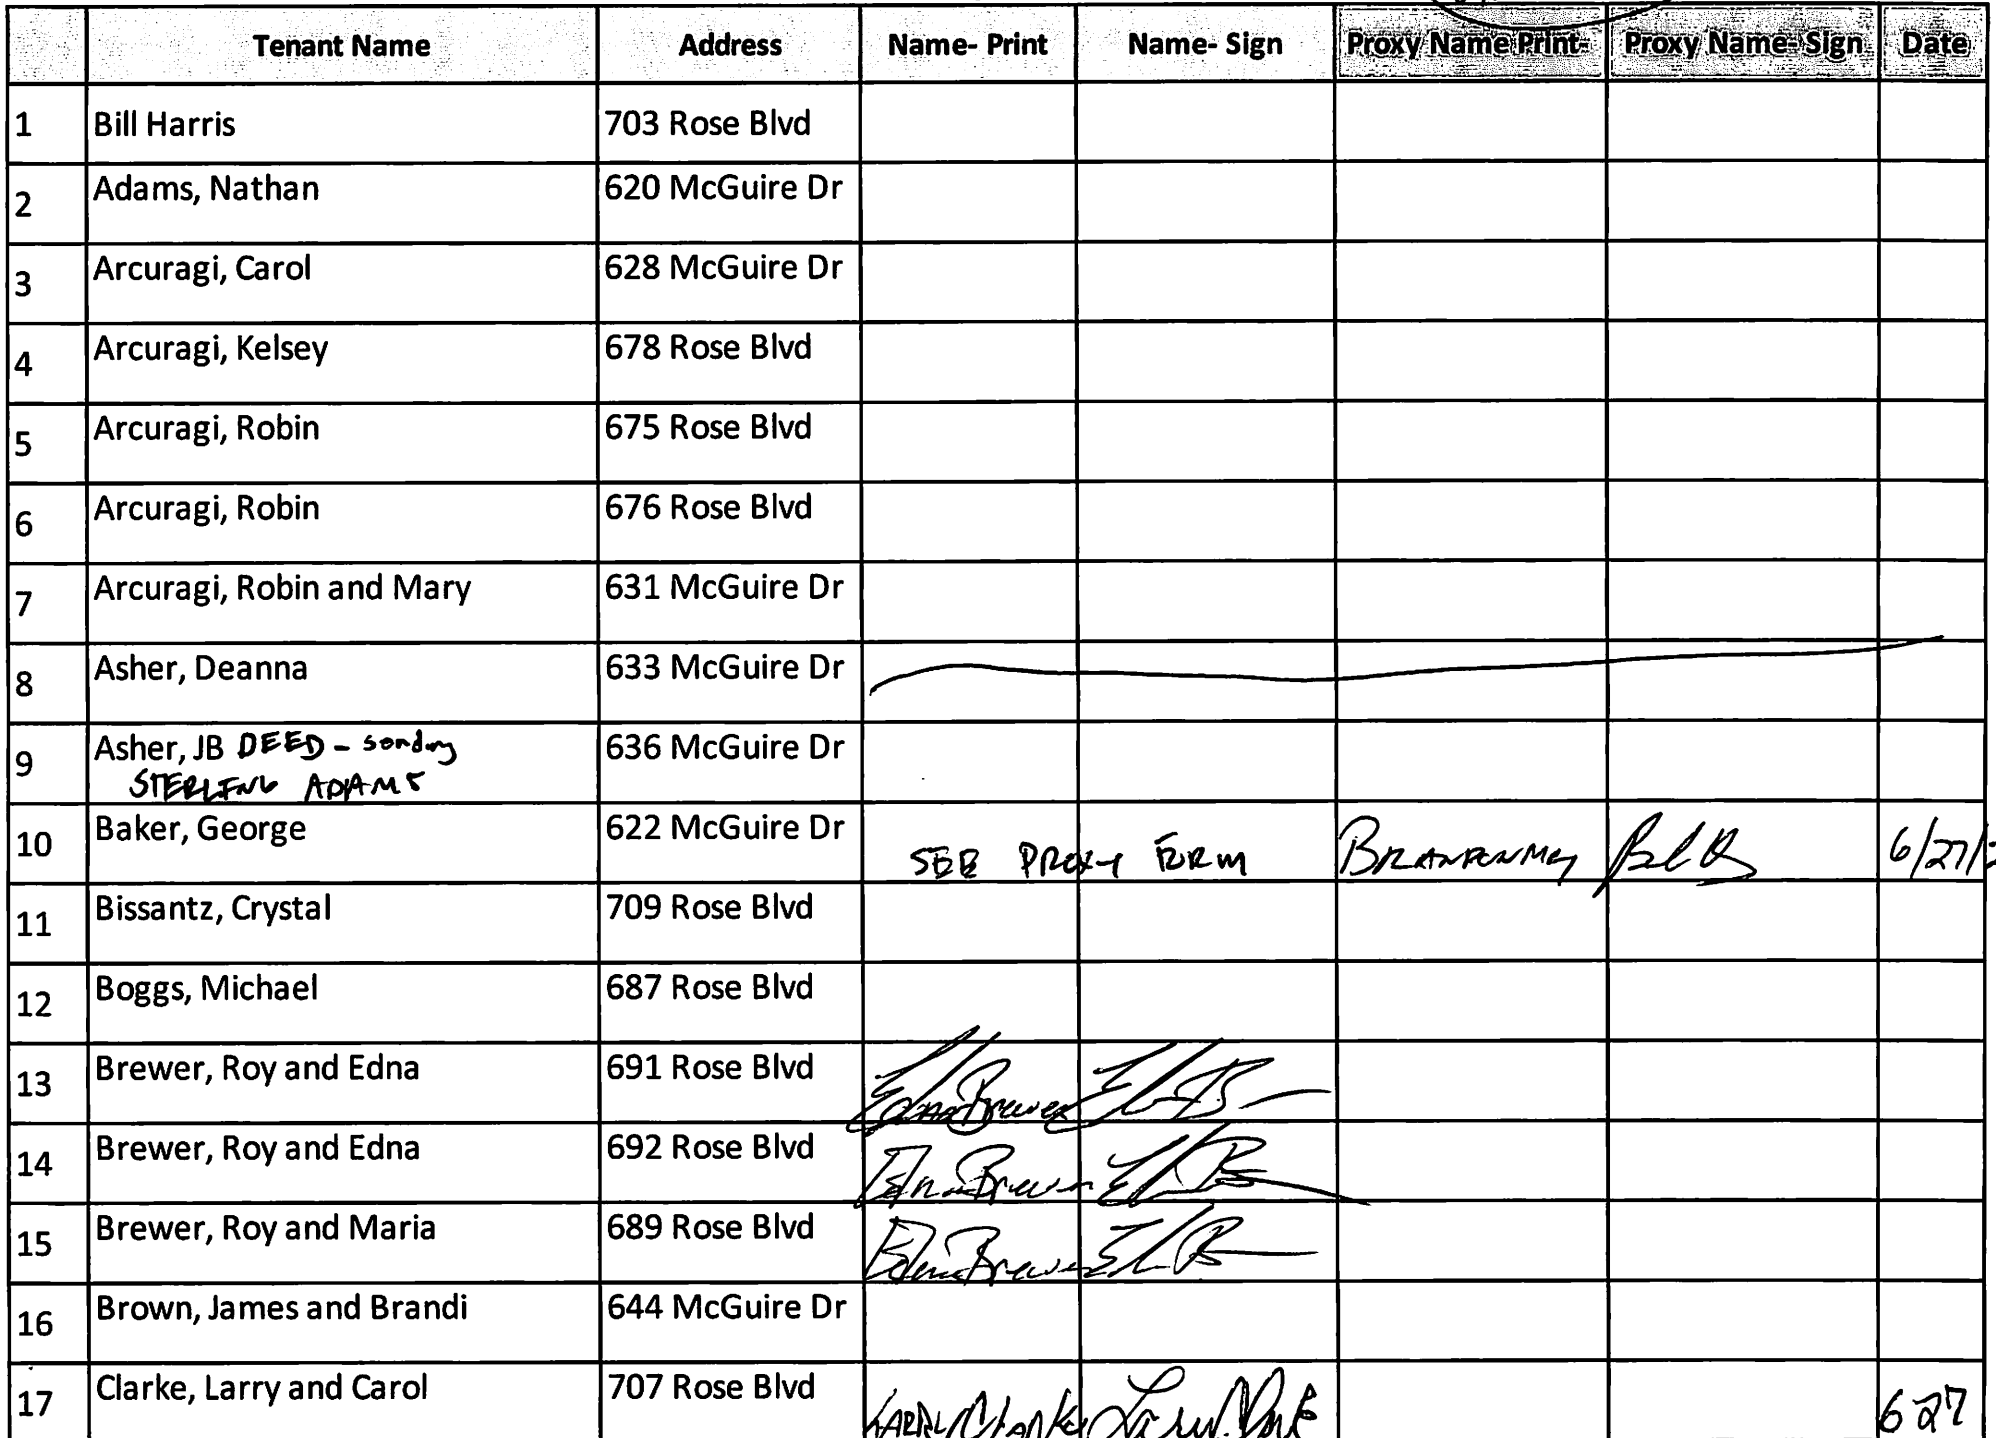 Tenant Name Address Name- Print Name- Sign Proxy Name Print- Proxy Name- Sign Date
1 Bill Harris 703 Rose Blvd
2 Adams, Nathan 620 McGuire Dr
3 Arcuragi, Carol 628 McGuire Dr
4 Arcuragi, Kelsey 678 Rose Blvd
5 Arcuragi, Robin 675 Rose Blvd
6 Arcuragi, Robin 676 Rose Blvd
7 Arcuragi, Robin and Mary 631 McGuire Dr
8 Asher, Deanna 633 McGuire Dr
9 Asher, JB DEED - 636 McGuire Dr
STERLING ADAMS
10 Baker, George 622 McGuire Dr SEE PROXY FORM 6/27/
11 Bissantz, Crystal 709 Rose Blvd
12 Boggs, Michael 687 Rose Blvd
13 Brewer, Roy and Edna 691 Rose Blvd Edna Brewer
14 Brewer, Roy and Edna 692 Rose Blvd Edna Brewer
15 Brewer, Roy and Maria 689 Rose Blvd Edna Brewer
16 Brown, James and Brandi 644 McGuire Dr
17 Clarke, Larry and Carol 707 Rose Blvd LARRY Clarke 6 27